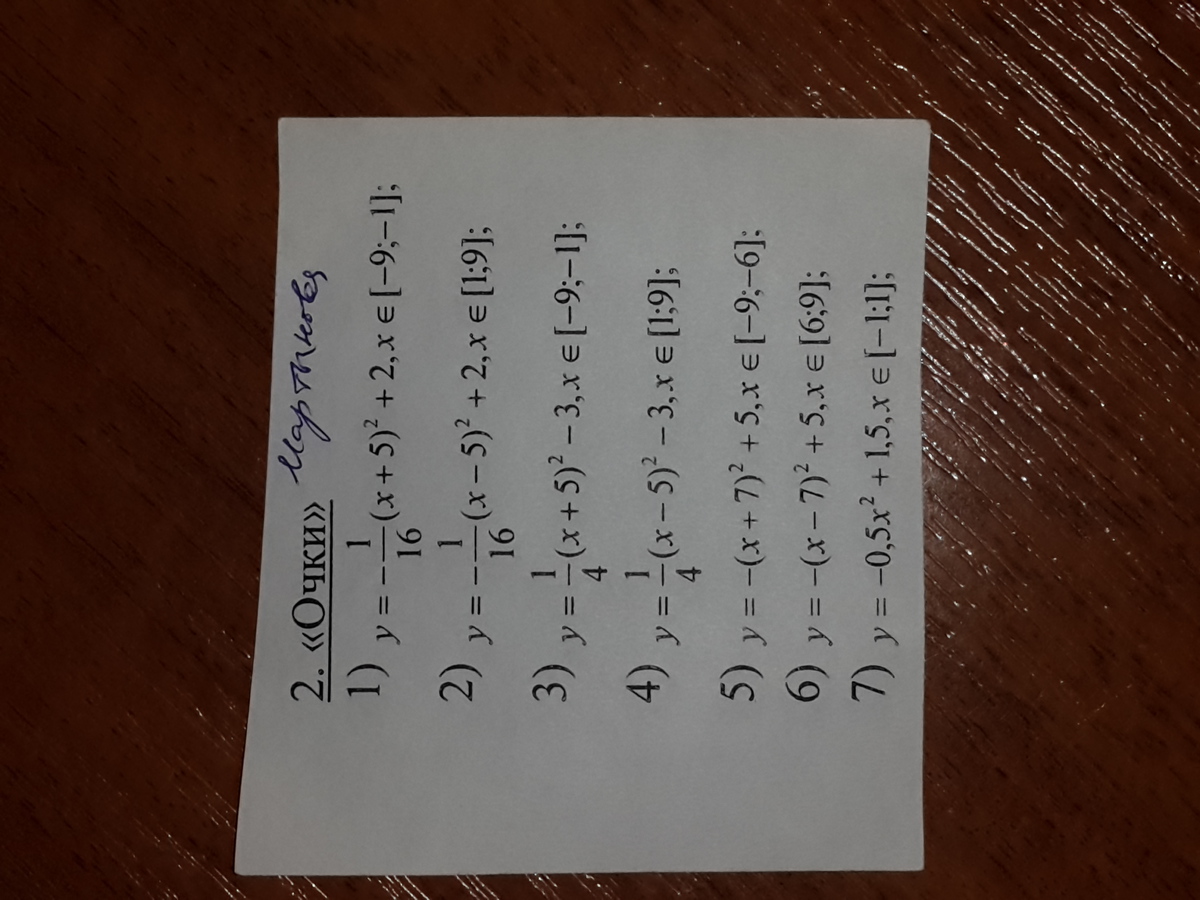 2. «Очки» Мартынов
1) y = -1/16(x + 5)² + 2, x ∈ [-9;-1];
2) y = -1/16(x - 5)² + 2, x ∈ [1;9];
3) y = 1/4(x + 5)² - 3, x ∈ [-9;-1];
4) y = 1/4(x - 5)² - 3, x ∈ [1;9];
5) y = -(x + 7)² + 5, x ∈ [-9;-6];
6) y = -(x - 7)² + 5, x ∈ [6;9];
7) y = -0,5x² + 1,5, x ∈ [-1;1];